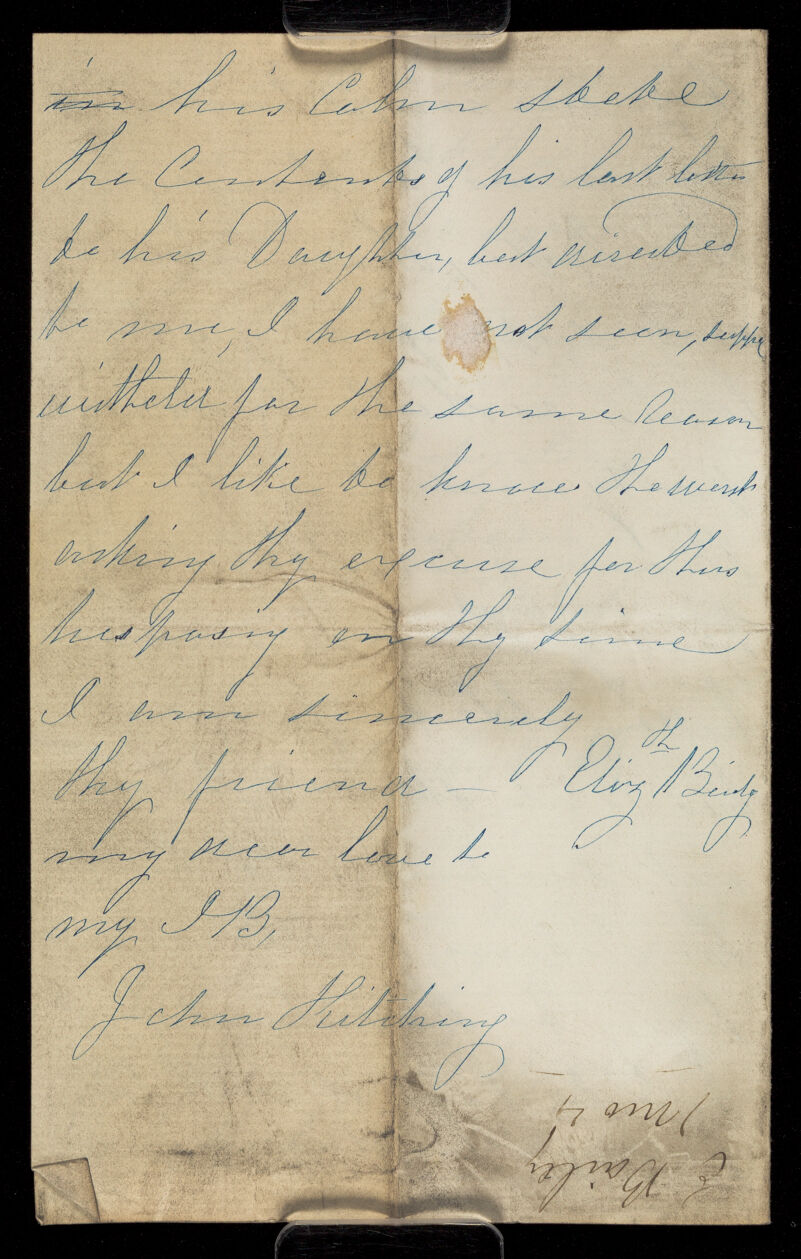 in his Calm state
the Contents of his last letter
to his Daughter, but directed
to me, I have not seen, suppe
withheld for the same reason
but I like to know the worst
asking thy excuse for this
trespasing on thy time
I am sincerely
thy friend — Eliz th
my dear love to
my J B,
John Kitching
E Bailey
1 mo 4